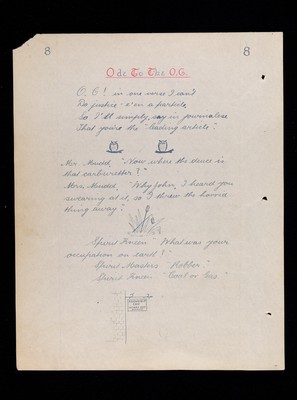 8
8
Ode To The O.C.
O.C! in one verse I can't
Do justice - e'en a particle
So I'll simply, say in journalese
That you're the "leading article".
Mr. Mudd, "Now where the deuce is
that carburetter?"
Mrs. Mudd, "Why John, I heard you
swearing at it, so I threw the horrid
thing away".
Spirit Knocks "What was your
occupation on earth?"
Spirit Masters "Robber".
Spirit Knocks "Coal or Gas."